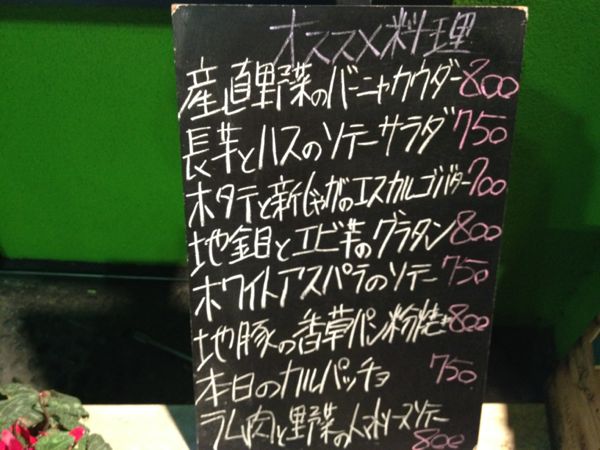 オススメ料理
産直野菜のバーニャカウダー800
長芋とハスのソテーサラダ750
ホタテと新じゃがのエスカルゴバター700
地金目とエビ芋のグラタン800
ホワイトアスパラのソテー750
地豚の香草パン粉焼き800
本日のカルパッチョ 750
ラム肉と野菜のトマトソースソテー
800